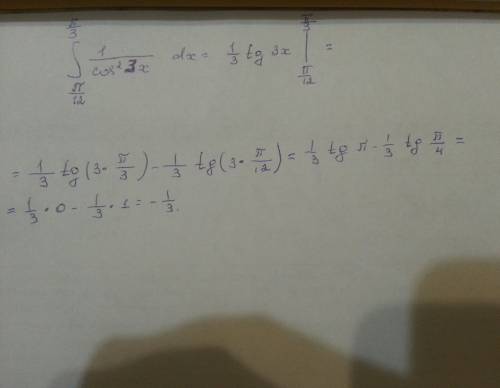 ∫_{π/12}^{π/3} 1/cos² 3x dx = 1/3 tg 3x |_{π/12}^{π/3} =
= 1/3 tg(3·π/3) - 1/3 tg(3·π/12) = 1/3 tg π - 1/3 tg π/4 =
= 1/3 · 0 - 1/3 · 1 = - 1/3.